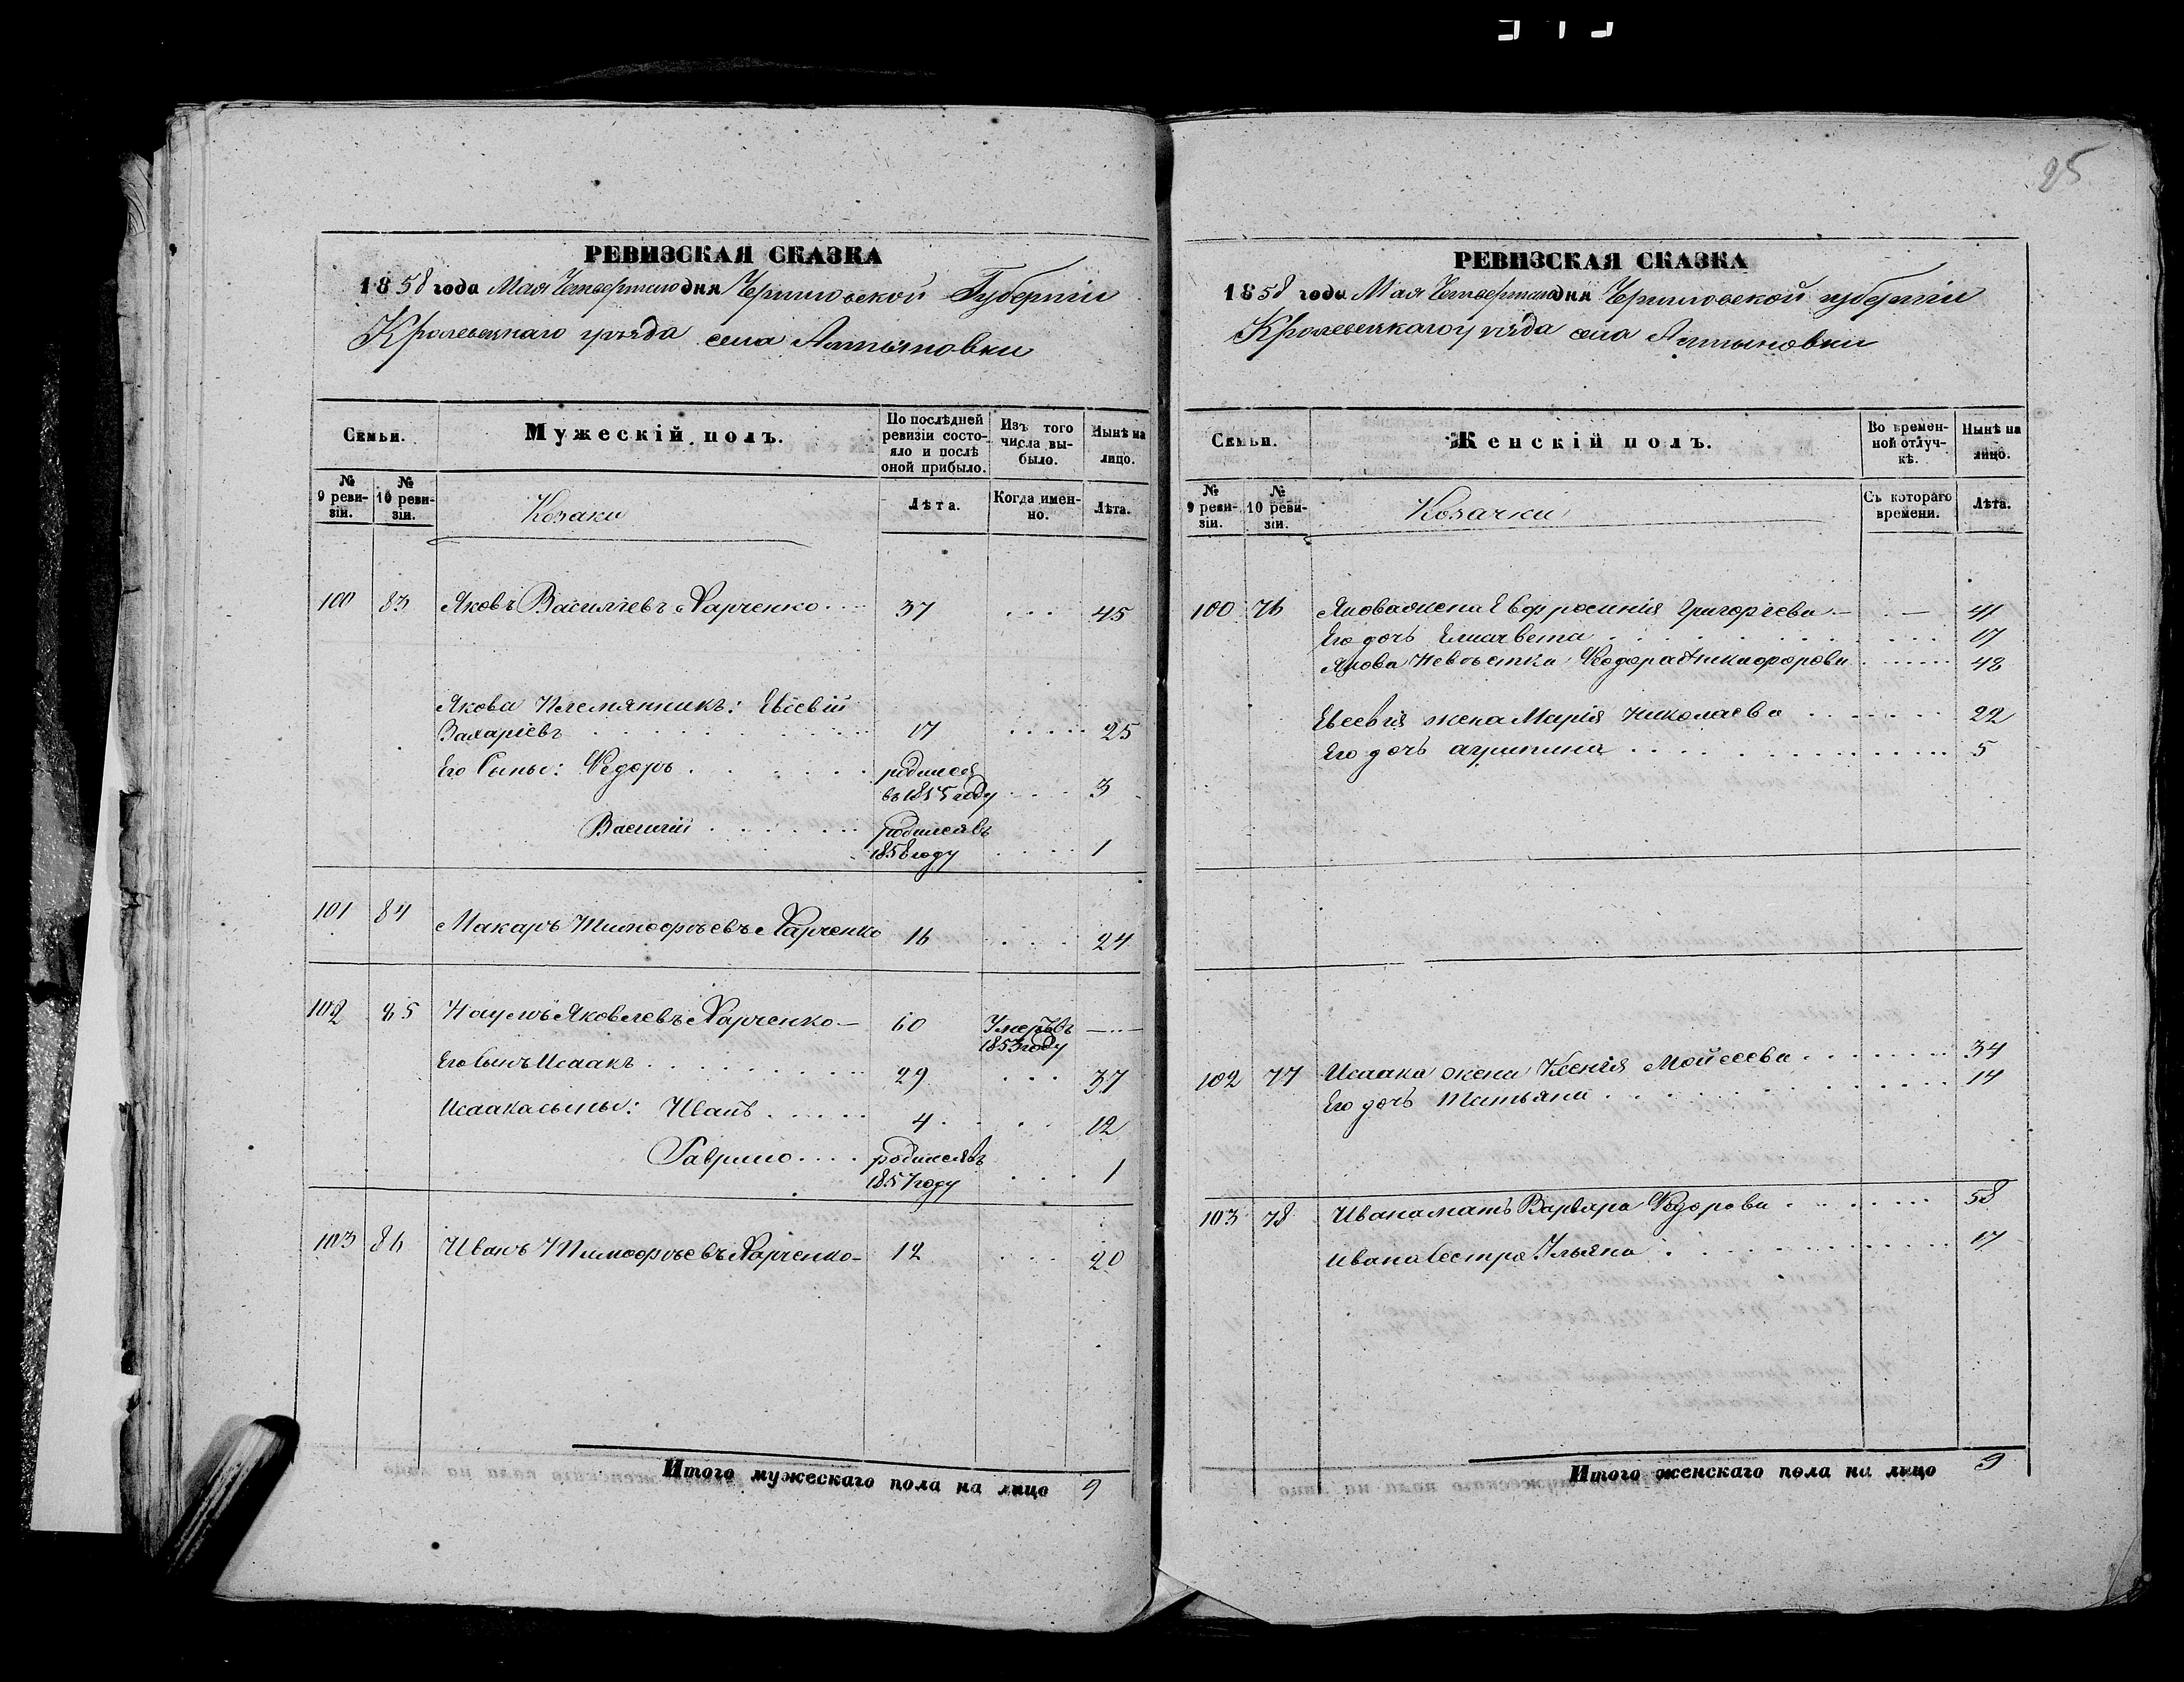 25
РЕВИЗСКАЯ СКАЗКА
1858 года Мая Четвертаго дня Черниговской Губерніи
Кролевецкаго уѣзда села Алтыновки
Семьи.
Мужескій полъ.
По послѣдней ревизіи состояло и послѣ оной прибыло.
Изъ того числа выбыло.
Нынѣ на лицо.
№ 9 ревизіи.
№ 10 ревизіи.
Козаки
Лѣта.
Когда именно.
Лѣта.
100 83 Яковъ Васильевъ Харченко 37 45
Якова Племянникъ: Евсевій
Захаріевъ 17 25
Его Сыны: Федоръ родился
въ 1855 году 3
Василій родился въ
1858 году 1
101 84 Макаръ Тимофѣевъ Харченко 16 24
102 85 Наумъ Яковлевъ Харченко 60 Умеръ въ
1853 году
Его Сынъ Исаакъ 29 37
Исаака сыны: Иванъ 4 12
Гаврило родился въ
1857 году 1
103 86 Иванъ Тимофѣевъ Харченко 12 20
Итого мужескаго пола на лицо 9
РЕВИЗСКАЯ СКАЗКА
1858 года Мая Четвертаго дня Черниговской губерніи
Кролевецкаго уѣзда села Алтыновки
Семьи.
Женскій полъ.
Во временной отлучкѣ.
Нынѣ на лицо.
№ 9 ревизіи.
№ 10 ревизіи.
Козачки
Съ котораго времени.
Лѣта.
100 76 Якова жена Евфросинія Григорьева 41
Его дочь Елисавета 17
Якова Невѣстка Феодора Никифорова 48
Евсевія жена Марія Николаева 22
Его дочь Агрипина 5
102 77 Исаака жена Ксенія Мойсеева 34
Его дочь Татьяна 14
103 78 Ивана мать Варвара Федорова 58
Ивана Сестра Ульяна 17
Итого женскаго пола на лицо 9